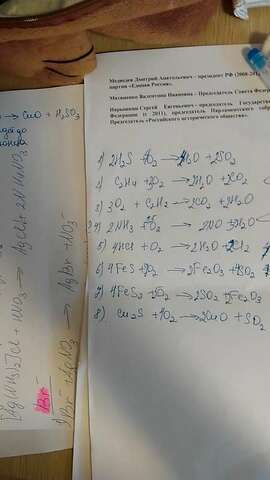 Медведев Дмитрий Анатольевич – президент РФ (2008-201
партии «Единая Россия».
Матвиенко Валентина Ивановна - Председатель Совета Федера
Нарышкин Сергей Евгеньевич - председатель Государстве
Федерации (с 2011), председатель Парламентского собра
Председатель «Российского исторического общества».
1) 2H₂S + O₂ → H₂O + 2SO₂
2) C₂H₄ + 3O₂ → 2H₂O + 2CO₂
3) 3O₂ + C₂H₄ → 2CO₂ + 2H₂O
4) 2NH₃ + O₂ → 2NO + H₂O
5) 4HCl + O₂ → 2H₂O + 2Cl₂
6) 4FeS + 7O₂ → 2Fe₂O₃ + 4SO₂
7) 4FeS₂ + O₂ → 2SO₂ + 2Fe₂O₃
8) Cu₂S + O₂ → 2CuO + SO₂
→ CuO + H₂SO₃
[Ag(NH₃)₂]Cl + HNO₃ → AgCl + 2NH₄NO₃
Br⁻ + AgNO₃ → AgBr + NO₃⁻